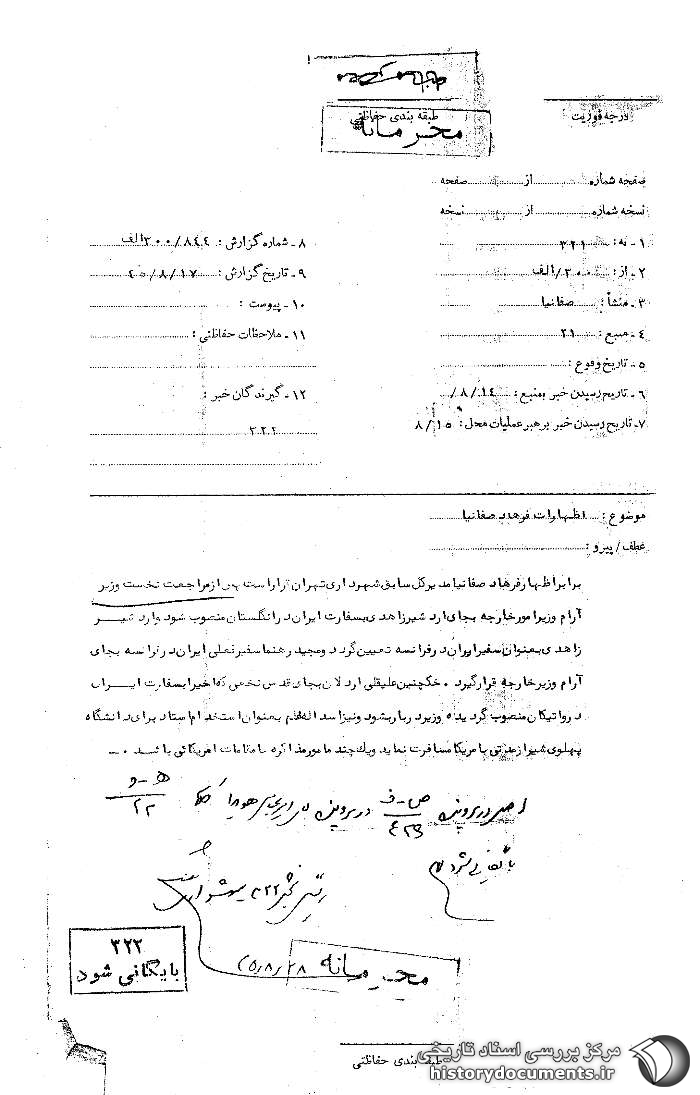 محرمانه
درجه فوریت
طبقه بندی حفاظتی
محرمانه
صفحه شماره از صفحه
نسخه شماره از نسخه
۱ - به : ۳۲۱
۲ - از : ۳۰۰/الف
۳ - منشأ : صفانیا
۴ - منبع : ۲۱
۵ - تاریخ وقوع :
۶ - تاریخ رسیدن خبر بمنبع : ۸/۱۴/
۷ - تاریخ رسیدن خبر برهبر عملیات محل : ۸/۱۵
۸ - شماره گزارش : ۳۰۰/۸۴۴الف
۹ - تاریخ گزارش : ۴۵/۸/۱۷
۱۰ - پیوست :
۱۱ - ملاحظات حفاظتی :
۱۲ - گیرندگان خبر :
۳۲۲
موضوع : اظهارات فرهاد صفانیا
عطف / پیرو :
برابر اظهار فرهاد صفانیا مدیر کل سابق شهرداری تهران قرار است پس از مراجعت نخست وزیر
آرام وزیر امور خارجه بجای اردشیر زاهدی بسفارت ایران در انگلستان منصوب شود و اردشیر
زاهدی بعنوان سفیر ایران در فرانسه تعیین گردد و مجید رهنما سفیر فعلی ایران در فرانسه بجای
آرام وزیر خارجه قرار گیرد . همچنین علیقلی اردلان بجای قدس نخعی که اخیرا بسفارت ایران
در واتیکان منصوب گردیده وزیر دربار بشود و نیز اسداله علم بعنوان استخدام استاد برای دانشگاه
پهلوی شیراز مدتی بامریکا مسافرت نماید و یک چند مامور مذاکره با مقامات امریکائی باشد . -
اصل در پرونده در پرونده هویدا
بایگانی شود
رئیس بخش ۳۲۲
۴۵/۸/۲۸
محرمانه
۳۲۲
بایگانی شود
طبقه بندی حفاظتی
مرکز بررسی اسناد تاریخی
historydocuments.ir